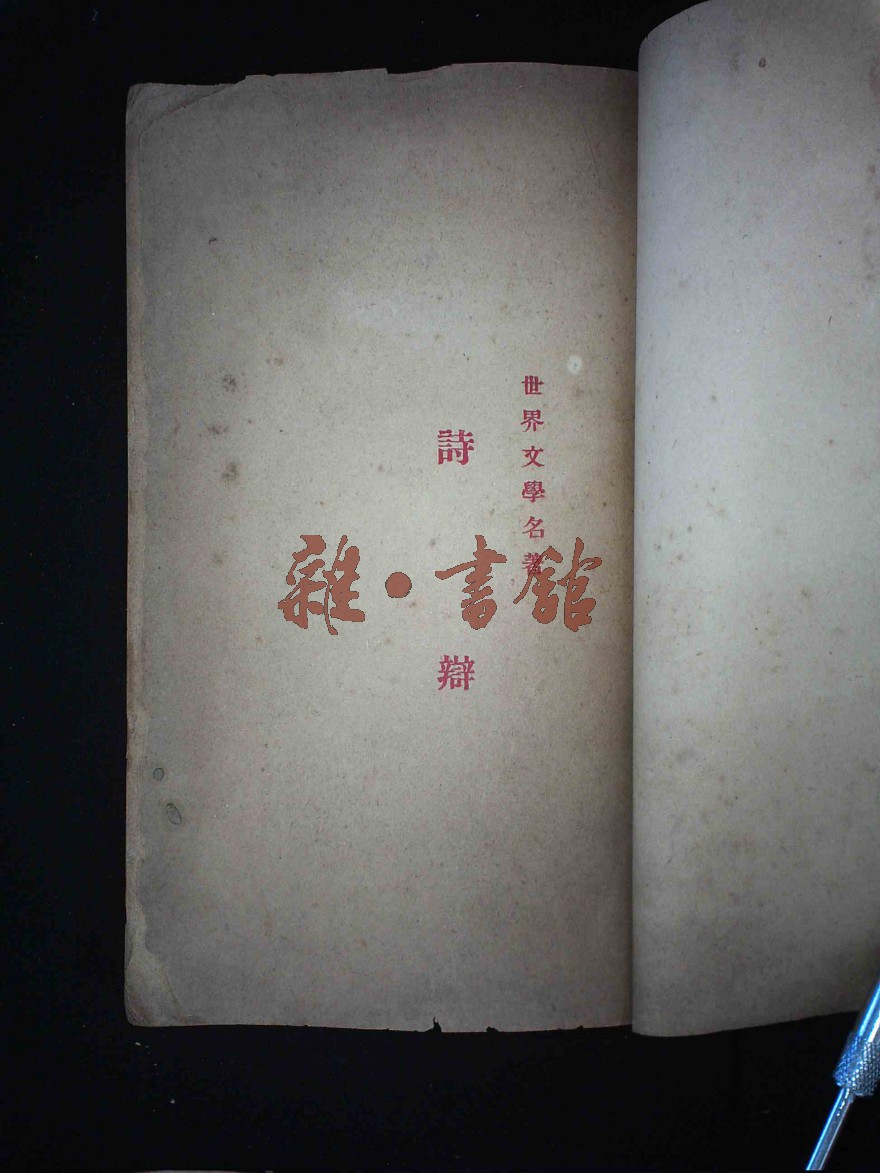 世界文學名著
詩辯
雜·書館